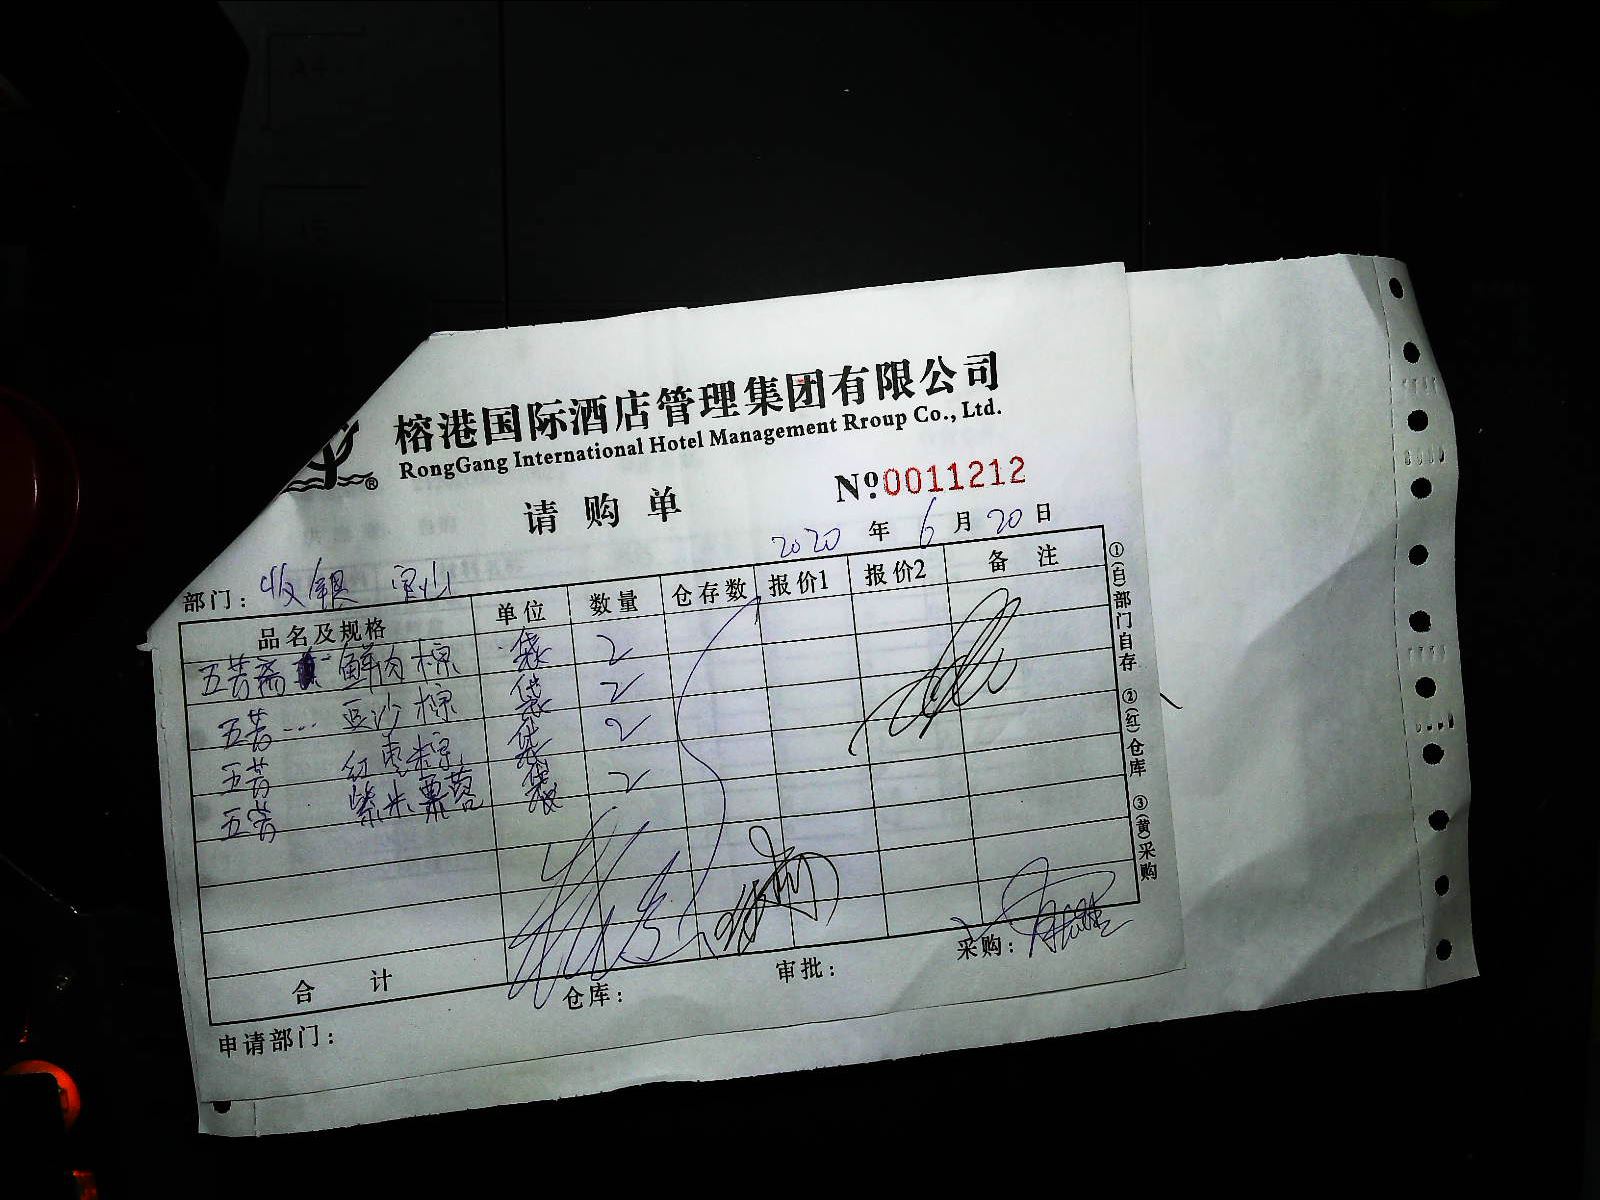 榕港国际酒店管理集团有限公司
RongGang International Hotel Management Rroup Co., Ltd.
®
请购单
№ 0011212
2020 年 6 月 20 日
部门：收银
品名及规格 单位 数量 仓存数 报价1 报价2 备注
五芳斋 鲜肉棕 袋 2
五芳... 豆沙棕 袋 2
五芳 红枣棕 袋 2
五芳 紫米栗蓉 袋 2
合计
申请部门： 仓库： 审批： 采购：
①(白)部门自存 ②(红)仓库 ③(黄)采购